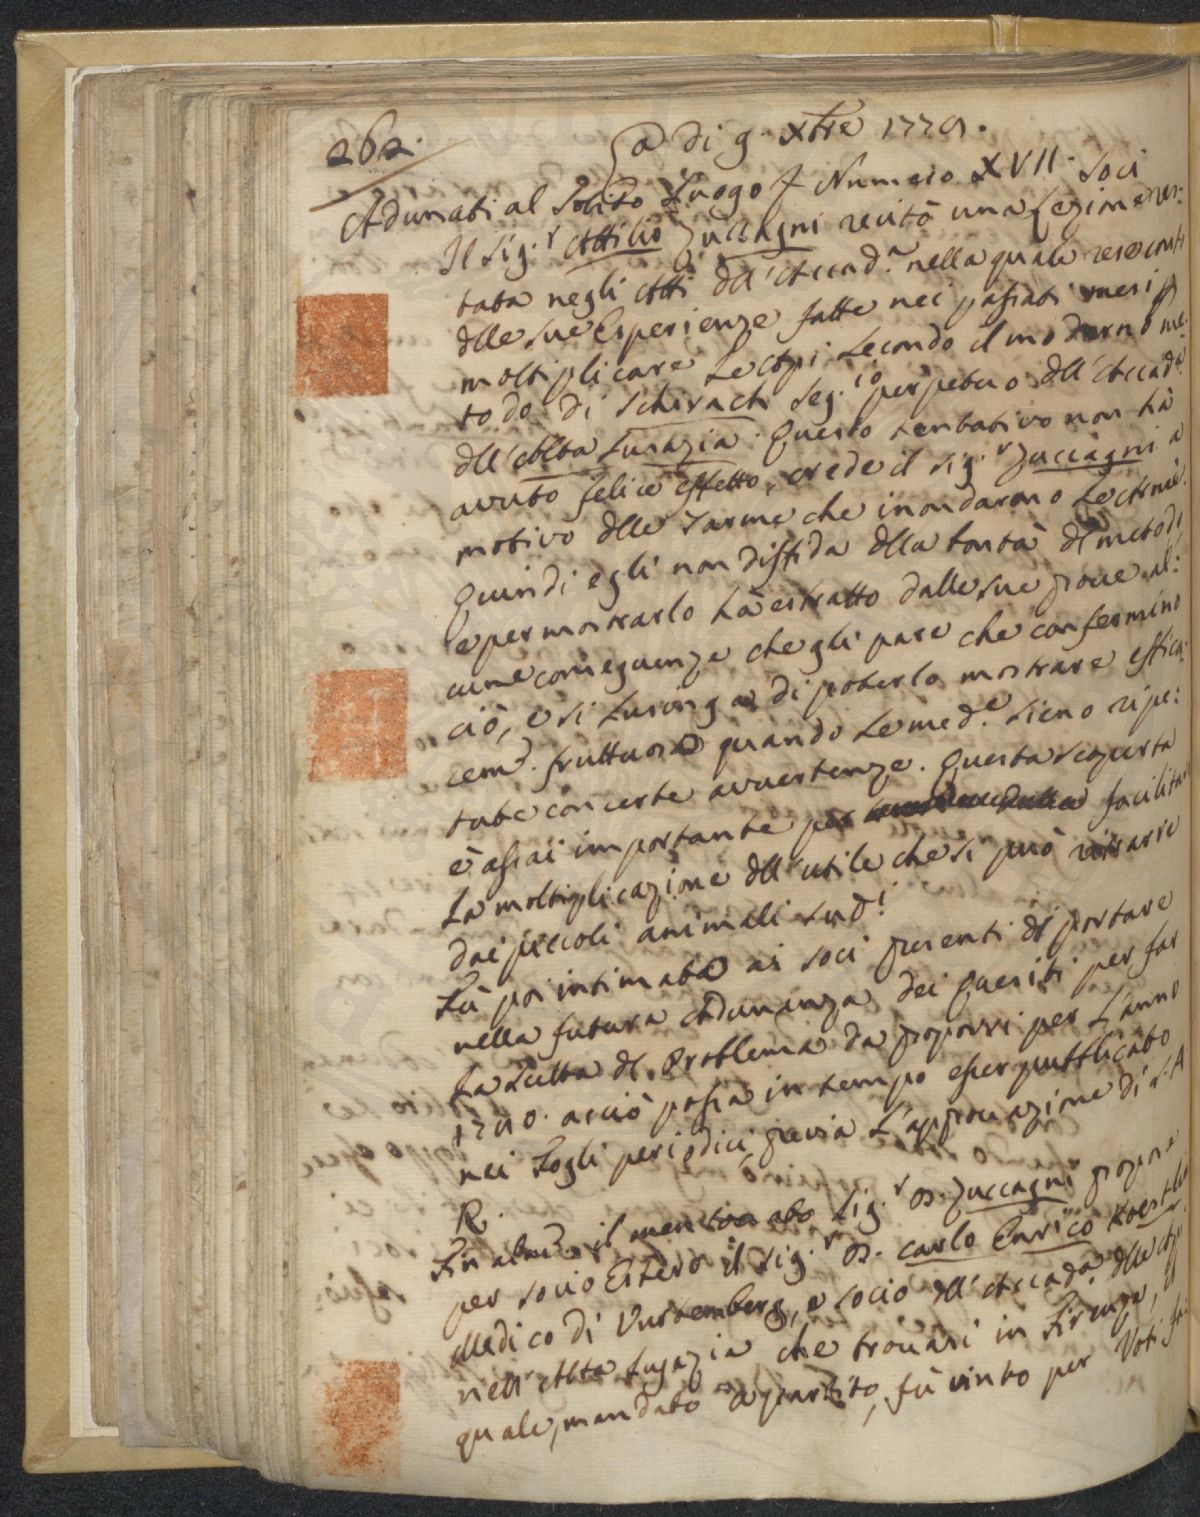 262.
a di 9. Xbre 1779.
Adunati al Solito Luogo in Numero XVII. Soci
Il Sig.r Attilio Zuccagni recitò una Lezione res:
tata negli Atti dll'Accad.a nella quale rese conto
dlle sue Esperienze fatte nei passati mesi p
moltiplicare Le Api Secondo il moderno me:
todo di Schirach Seg.rio perpetuo dll'Accad.a
dll'Alta Lusazia. Questo tentativo non hà
avuto felice effetto, crede il Sig.r Zuccagni a
motivo dlle Tarme che inondarono Le Arnie.
Quindi egli non diffida dlla bontà dl metodo
e per mostrarlo hà estratto dalle sue prove al:
cune conseguenze che gli pare che confermino
ciò, e si Lusinga di poterlo mostrare effica:
cem.e fruttuoso quando Le med.e sieno ripe:
tute con certe avvertenze. Questa scoperta
è assai importante per facilitare
La moltiplicazione dll'utile che si può ritrarre
dai piccoli animali sud.i
Fù poi intimato ai Soci presenti di portare
nella futura Adunanza dei Quesiti per far
La Scelta dl Problema da proporsi per L'anno
1780. acciò possa in tempo esser pubblicato
nei Fogli periodici, previa L'approvazione di S. A
R.
Finalm.e il mentovato Sig.r D. Zuccagni propose
per Socio Estero il Sig.r D. Carlo Enrico Koestlin
Medico di Vurtemberg, e Socio dll'Accad.a dlle Api
nell'Alta Lusazia che trovasi in Firenze, il
quale, mandato a partito, fù vinto per Voti fa: